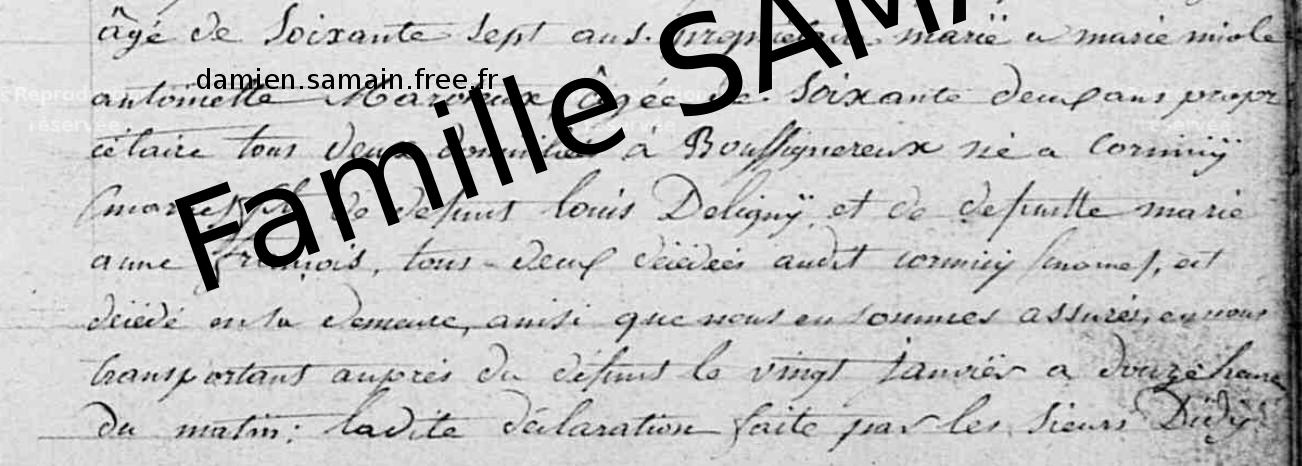 âgé de Soixante Sept ans. proprietaire marié a marie nicole
damien.samain.free.fr
Famille SAMA
antoinette âgée de Soixante deux ans propri
étaire tous deux domiciliés à Bouffignereux né a Cormicy
(marne) fils de defunt louis Deligny et de defuntte marie
anne françois, tous deux décédés audit cormicy (marne), est
décédé en sa demeure, ainsi que nous en sommes assurés, en nous
transportant auprès du défunt le vingt Janvier a douze heure
du matin: ladite déclaration faite par les Sieurs